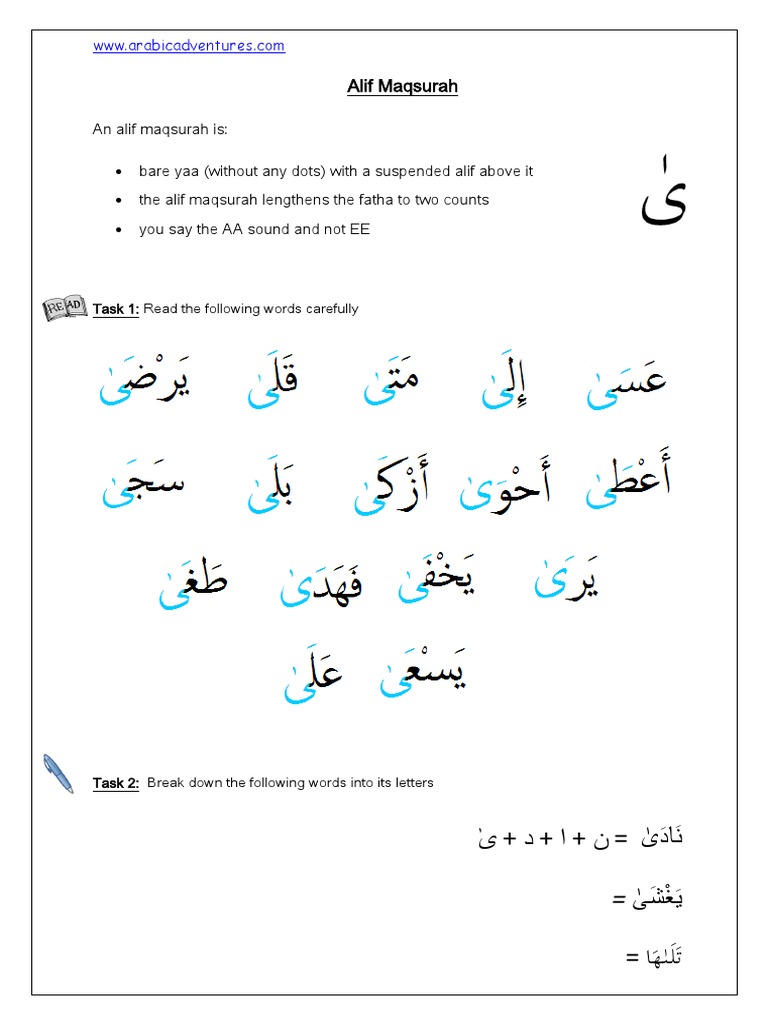 www.arabicadventures.com
Alif Maqsurah
An alif maqsurah is:
• bare yaa (without any dots) with a suspended alif above it
• the alif maqsurah lengthens the fatha to two counts
• you say the AA sound and not EE
ىٰ
READ
Task 1: Read the following words carefully
عَسَىٰ إِلَىٰ مَتَىٰ قَلَىٰ يَرْضَىٰ
أَعْطَىٰ أَحْوَىٰ أَزْكَىٰ بَلَىٰ سَجَىٰ
يَرَىٰ يَخْفَىٰ فَهَدَىٰ طَغَىٰ
يَسْعَىٰ عَلَىٰ
Task 2: Break down the following words into its letters
نَادَىٰ = ن + ا + د + ىٰ
يَغْشَىٰ =
تَلَىٰهَا =